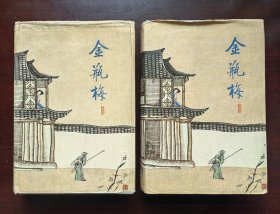 金瓶梅
金瓶梅